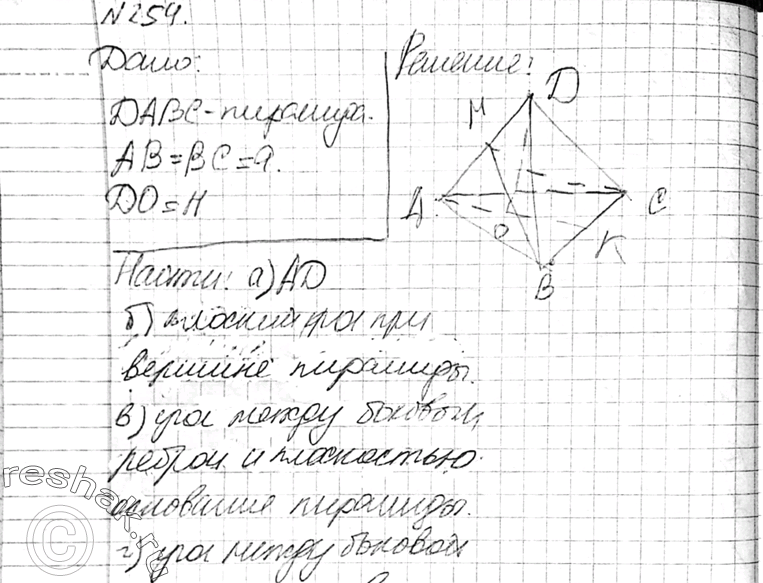 №254.
Дано:
Решение:
DABC-пирамида.
AB=BC=a.
DO=H
D
M
A
C
O
K
B
Найти: а)AD
б) плоский угол при
вершине пирамиды.
в) угол между боковым
ребром и плоскостью
основание пирамиды.
г) угол между боковой
reshak.ru
©